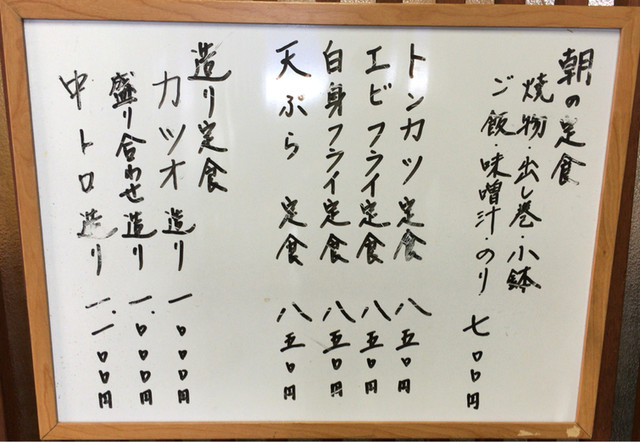 朝の定食
焼物・出し巻・小鉢
ご飯・味噌汁・のり 七〇〇円
トンカツ定食 八五〇円
エビフライ定食 八五〇円
白身フライ定食 八五〇円
天ぷら定食 八五〇円
造り定食
カツオ造り 一〇〇〇円
盛り合わせ造り 一.〇〇〇円
中トロ造り 一.一〇〇円